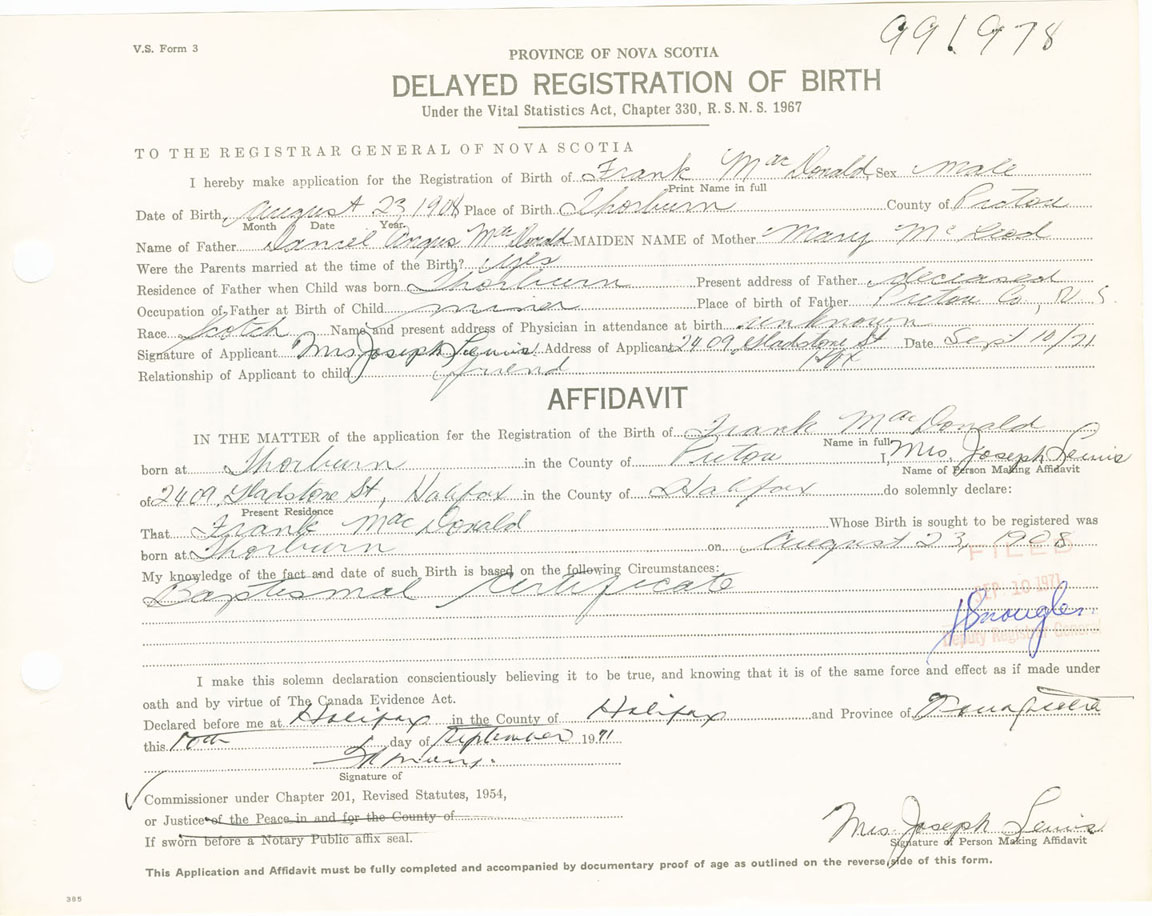 V.S. Form 3
991978
PROVINCE OF NOVA SCOTIA
DELAYED REGISTRATION OF BIRTH
Under the Vital Statistics Act, Chapter 330, R.S.N.S. 1967
TO THE REGISTRAR GENERAL OF NOVA SCOTIA
I hereby make application for the Registration of Birth of Frank MacDonald Sex Male
Print Name in full
Date of Birth, August 23 1908 Place of Birth Thorburn County of Pictou
Month Date Year
Name of Father Daniel Angus MacDonald MAIDEN NAME of Mother Mary McLeod
Were the Parents married at the time of the Birth? yes
Residence of Father when Child was born Thorburn Present address of Father deceased
Occupation of Father at Birth of Child miner Place of birth of Father Pictou Co, N.S.
Race Scotch Name and present address of Physician in attendance at birth unknown
Signature of Applicant Mrs Joseph Lewis Address of Applicant 2409 Gladstone St Hfx Date Sept 10/71
Relationship of Applicant to child friend
AFFIDAVIT
IN THE MATTER of the application for the Registration of the Birth of Frank MacDonald
Name in full
born at Thorburn in the County of Pictou I, Mrs. Joseph Lewis
Name of Person Making Affidavit
of 2409 Gladstone St, Halifax in the County of Halifax do solemnly declare:
Present Residence
That Frank MacDonald Whose Birth is sought to be registered was
born at Thorburn on August 23, 1908
My knowledge of the fact and date of such Birth is based on the following Circumstances:
Baptismal Certificate
FILED
SEP 10 1971
Deputy Registrar General
I make this solemn declaration conscientiously believing it to be true, and knowing that it is of the same force and effect as if made under
oath and by virtue of The Canada Evidence Act.
Declared before me at Halifax in the County of Halifax and Province of Nova Scotia
this 10th day of September 1971
Signature of
Commissioner under Chapter 201, Revised Statutes, 1954,
or Justice of the Peace in and for the County of
If sworn before a Notary Public affix seal.
Mrs. Joseph Lewis
Signature of Person Making Affidavit
This Application and Affidavit must be fully completed and accompanied by documentary proof of age as outlined on the reverse side of this form.
395